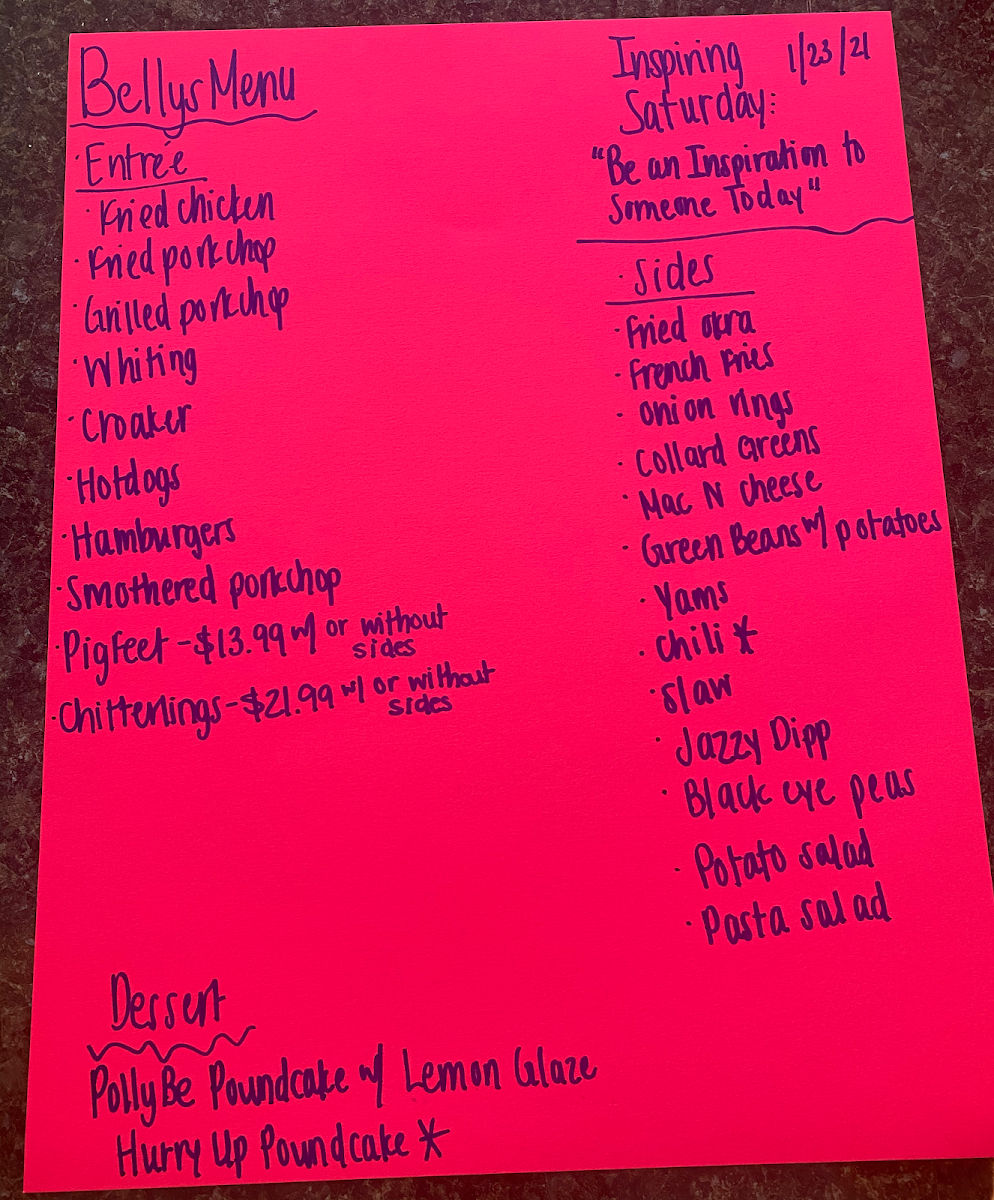 Bellys Menu
· Entrée
· Fried chicken
· Fried porkchop
· Grilled porkchop
· Whiting
· Croaker
· Hotdogs
· Hamburgers
· Smothered porkchop
· Pigfeet - $13.99 w/ or without
sides
· Chitterlings - $21.99 w/ or without
sides
Inspiring 1/23/21
Saturday:
"Be an Inspiration to
Someone Today"
· Sides
· Fried okra
· French Fries
· Onion rings
· Collard Greens
· Mac N cheese
· Green Beans w/ potatoes
· Yams
· Chili *
· Slaw
· Jazzy Dipp
· Black eye peas
· Potato salad
· Pasta salad
Dessert
PollyBe Poundcake w/ Lemon Glaze
Hurry Up Poundcake *